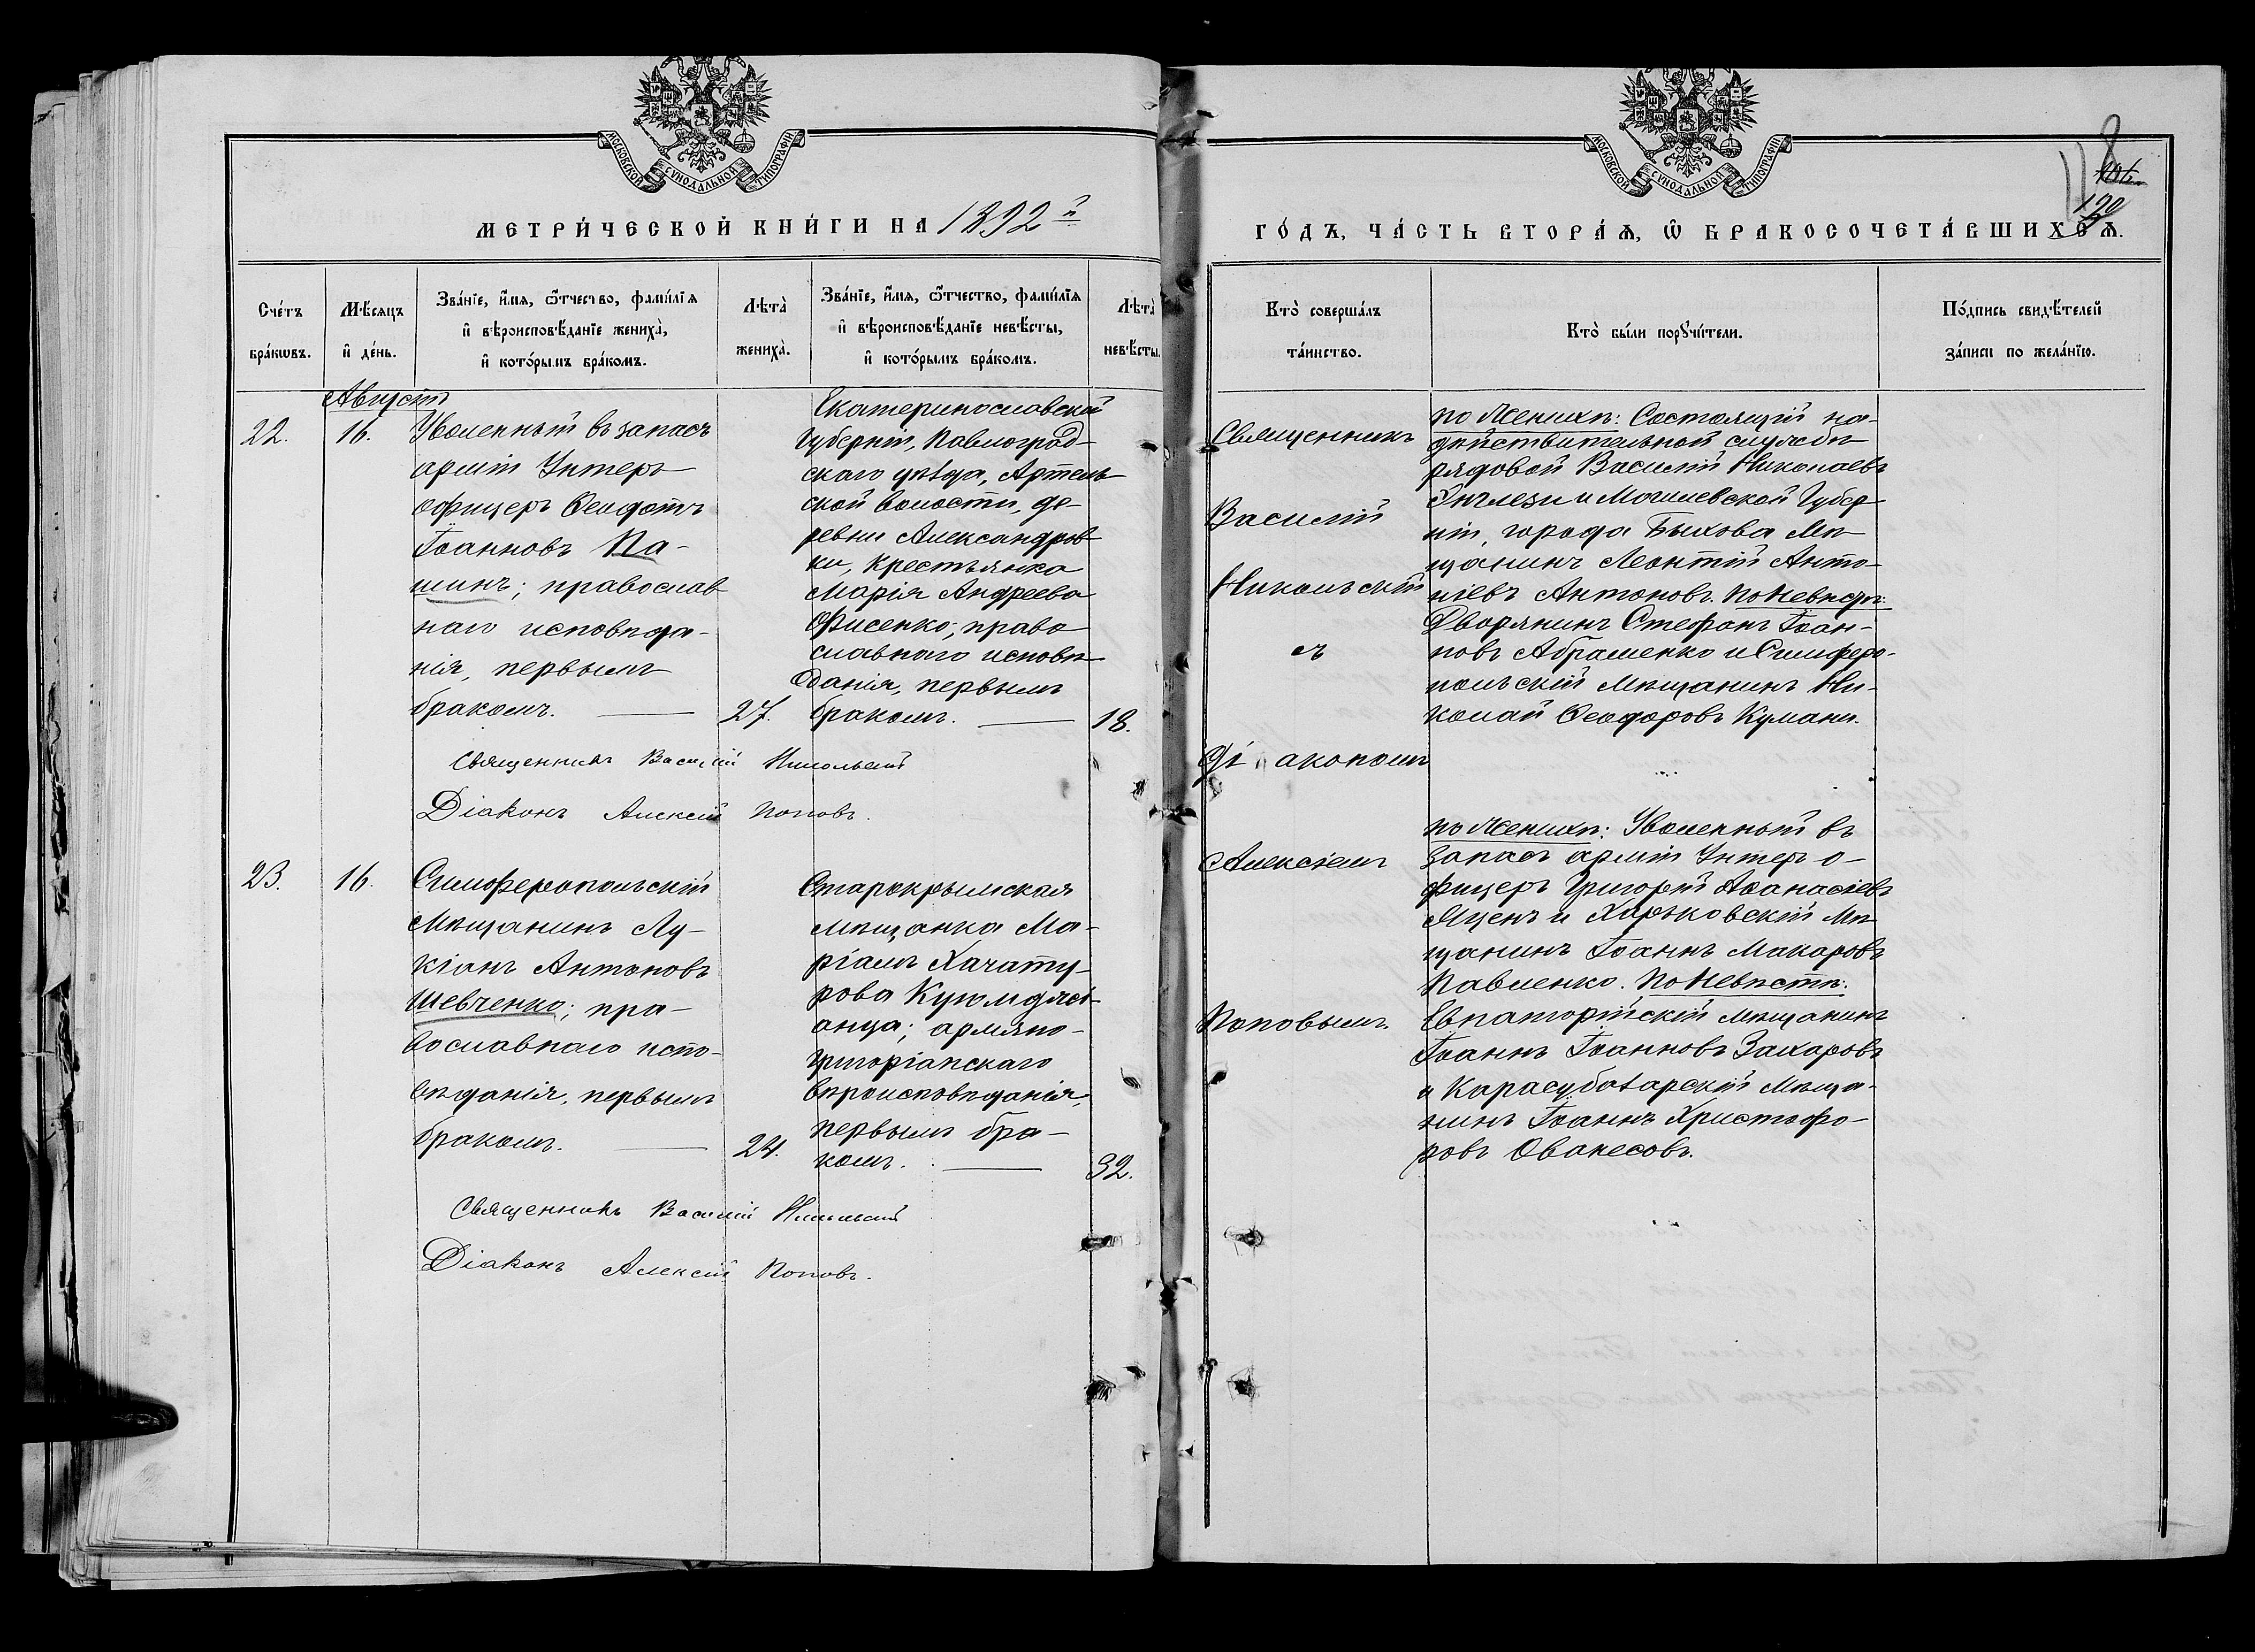 МОСКОВСКОЙ СѴНОДАЛЬНОЙ ТИПОГРАФІИ
МЕТРИ́ЧЕСКОЙ КНИ́ГИ НА 1892 й
Сче́тъ бра́кѡвъ.
Мѣ́сяцъ и҆ де́нь.
Зва́нїе, и҆́мя, ѻ҆́тчество, фамі́лїя
и҆ вѣроисповѣ́данїе жениха̀,
и҆ кото́рымъ бра́комъ.
Лѣта̀ жениха̀.
Зва́нїе, и҆́мя, ѻ҆́тчество, фамі́лїя
и҆ вѣроисповѣ́данїе невѣ́сты,
и҆ кото́рымъ бра́комъ.
Лѣта̀ невѣ́сты.
Августъ
22.
16.
Уволенный въ запасъ
арміи Унтеръ
офицеръ Ѳеодотъ
Іоанновъ Па-
шинъ; православ
наго исповѣда-
нія, первымъ
бракомъ.
27.
Екатеринославской
Губерніи, Павлоград-
скаго уѣзда, Артель
ской волости, де-
ревни Александров
ки, крестьянка
Марія Андреева
Фисенко; право
славнаго исповѣ
данія, первымъ
бракомъ.
18.
Священникъ Василій Никольскій
Діаконъ Алексій Поповъ.
23.
16.
Симферопольскій
Мѣщанинъ Лу-
кіанъ Антоновъ
Шевченко; пра-
вославнаго испо-
вѣданія, первымъ
бракомъ.
24.
Старокрымская
мѣщанка Ма-
ріамъ Хачату-
рова Куюмджі-
анца; армяно-
григоріанскаго
вѣроисповѣданія,
первымъ бра-
комъ.
32.
Священникъ Василій Никольскій
Діаконъ Алексій Поповъ.
МОСКОВСКОЙ СѴНОДАЛЬНОЙ ТИПОГРАФІИ
118
120
ГО́ДЪ, ЧА́СТЬ ВТОРА́Я, Ѡ҆ БРАКОСОЧЕТА́ВШИХСЯ.
Кто̀ соверша́лъ
та́инство.
Кто̀ бы́ли порꙋчи́тели.
По́дпись свидѣ́телей
за́писи по жела́нїю.
Священникъ
Василій
Никольскій
съ
Діакономъ
Алексіемъ
Поповымъ.
по Женихѣ: Состоящій на-
дѣйствительной службѣ
рядовой Василій Николаевъ
Энглези и Могилевской Губер
ніи, города Быхова Мѣ
щанинъ Леонтій Анто-
ніевъ Антоновъ. по Невѣстѣ:
Дворянинъ Стефанъ Іоан-
новъ Абраменко и Симферо-
польскій мѣщанинъ Ни-
колай Ѳеодоровъ Кумани.
по Женихѣ: Уволенный въ
запасъ арміи Унтеръ о-
фицеръ Григорій Аѳанасіевъ
Яценъ и Харьковскій Мѣ
щанинъ Іоаннъ Макаровъ
Павленко. По Невѣстѣ:
Евпаторійскій мѣщанинъ
Іоаннъ Іоанновъ Захаровъ
и Карасубазарскій Мѣща-
нинъ Іоаннъ Христофо-
ровъ Ованесовъ.